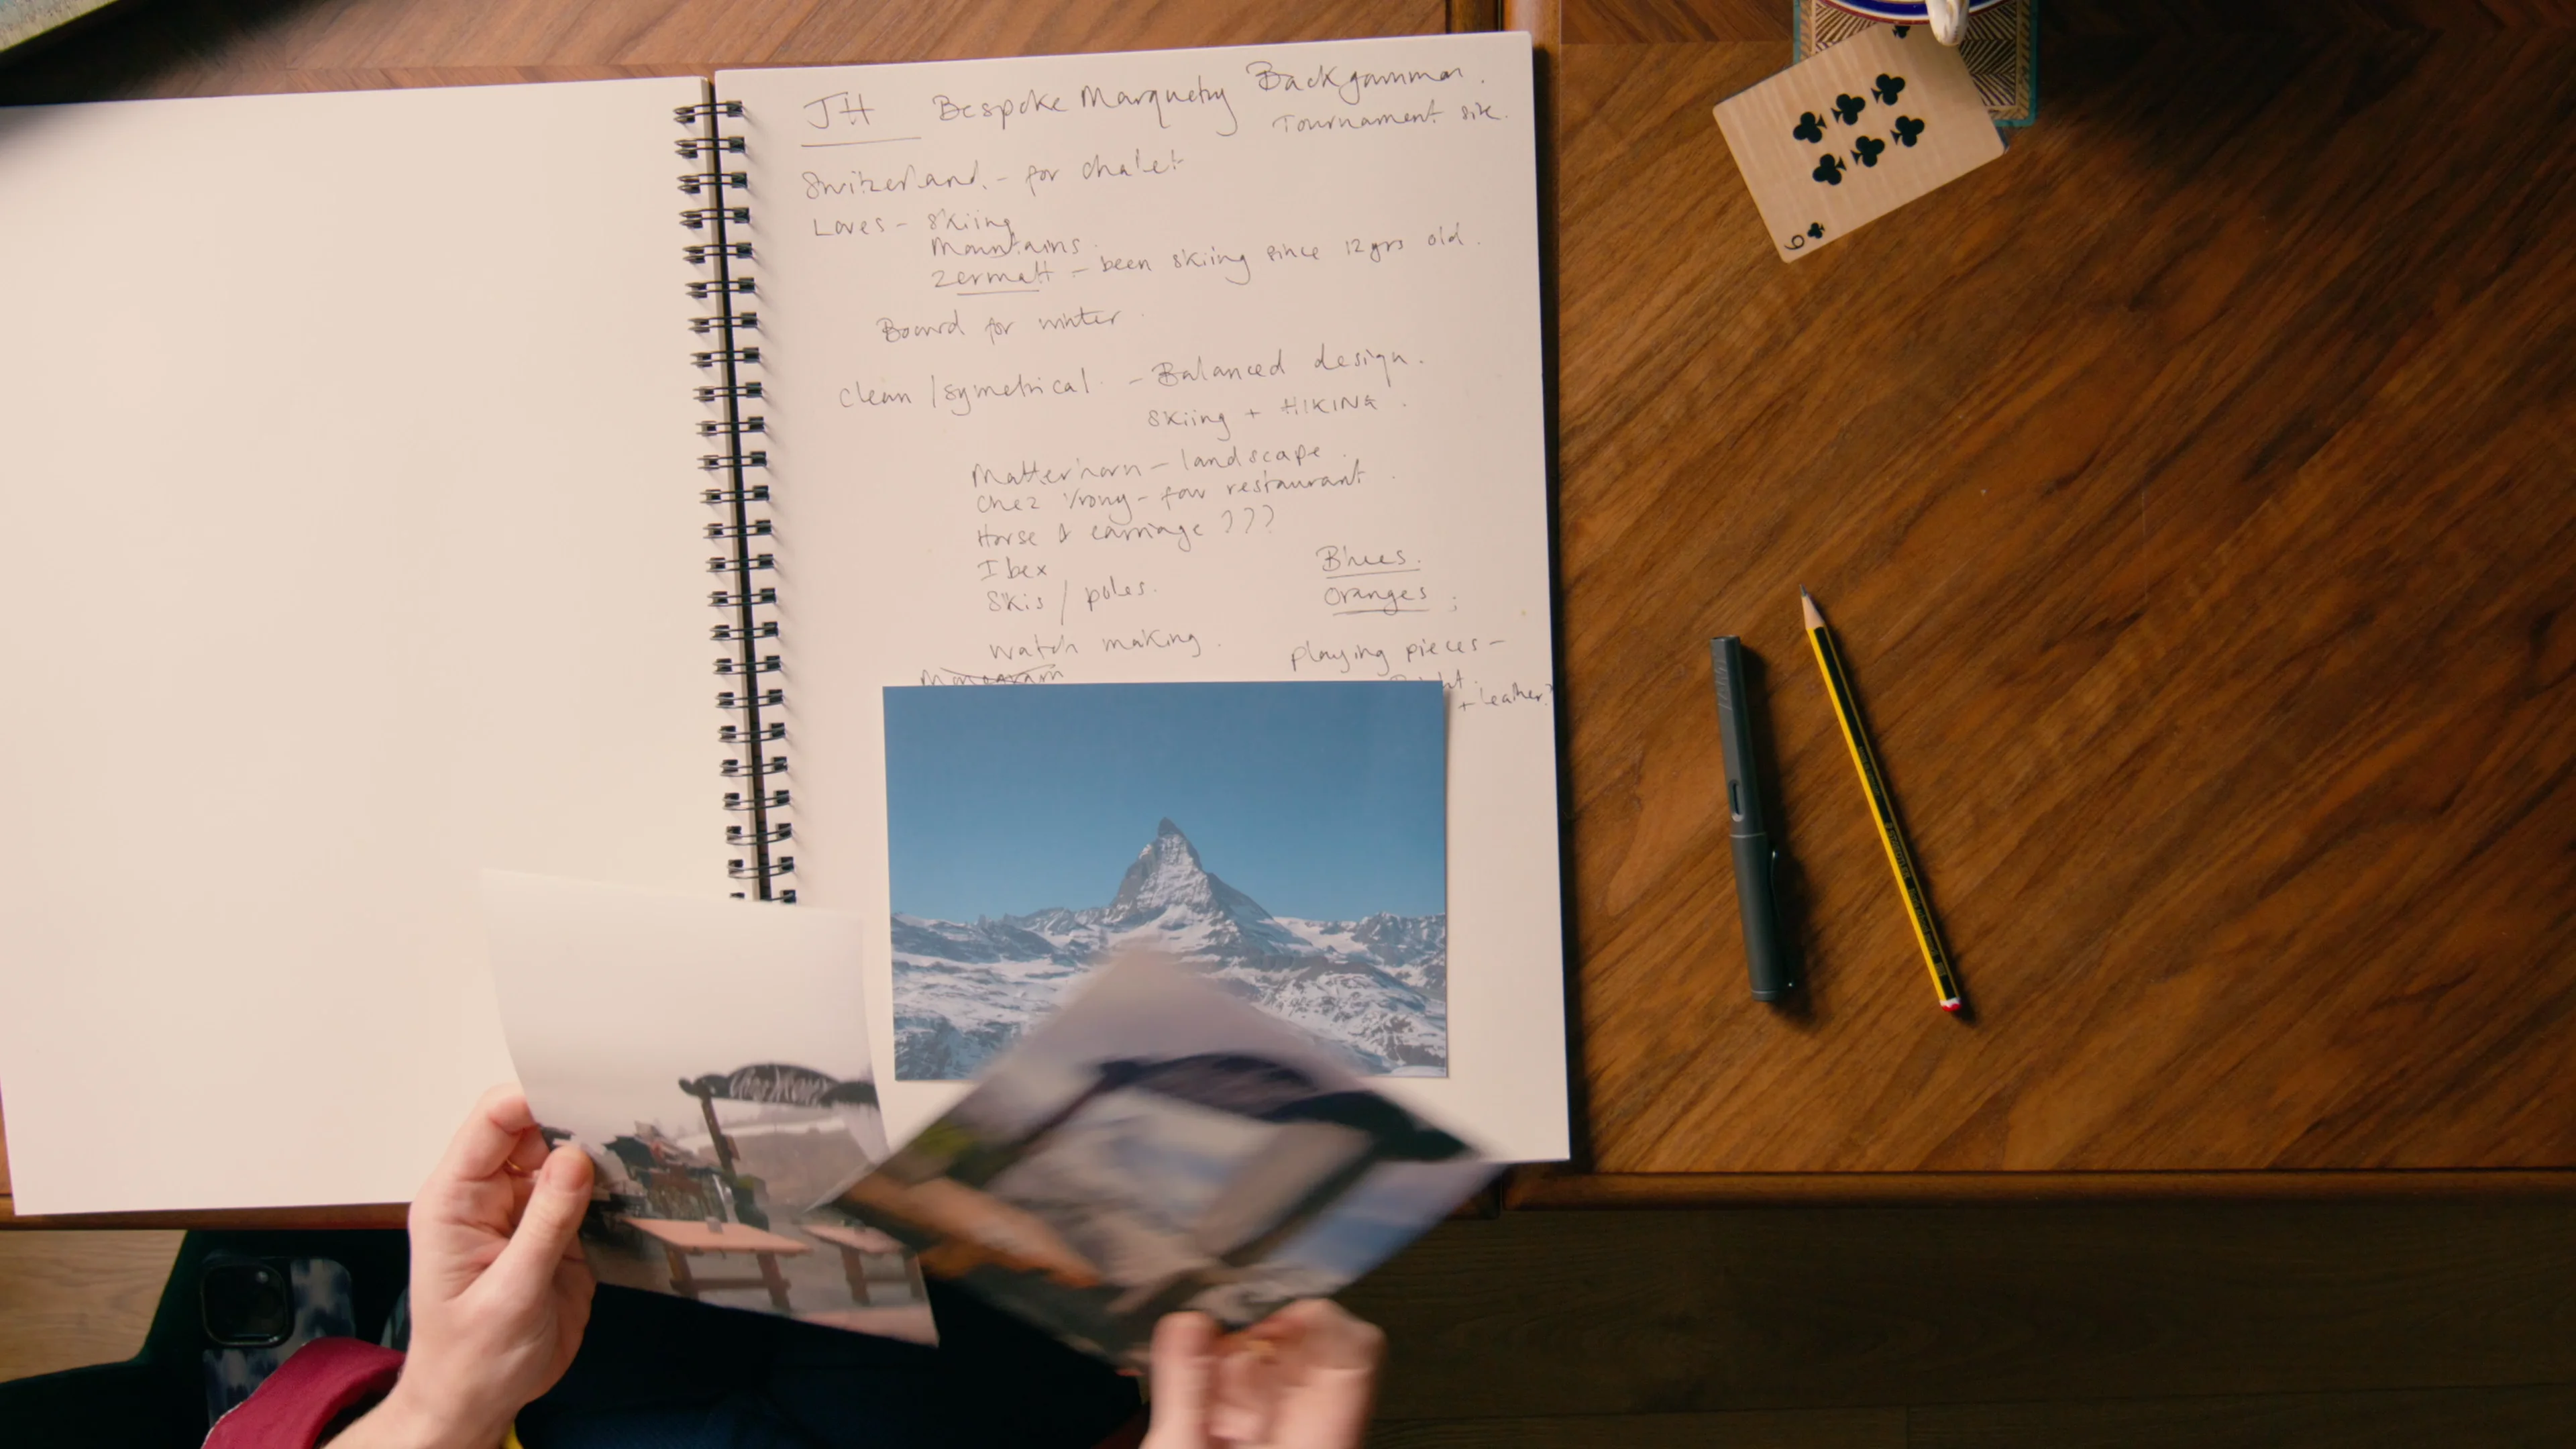 JH Bespoke Marquetry Backgammon.
Tournament size.
Switzerland. - for chalet
Loves - skiing
Mountains.
Zermatt - been skiing since 12 yrs old.
Board for winter.
Clean / symetrical. - Balanced design.
Skiing + HIKING.
Matterhorn - landscape.
Chez Vrony - fav restaurant.
Horse & carriage ???
Ibex
Skis / poles.
Blues.
Oranges;
Watch making.
Monogram
playing pieces -
+ leather?
6